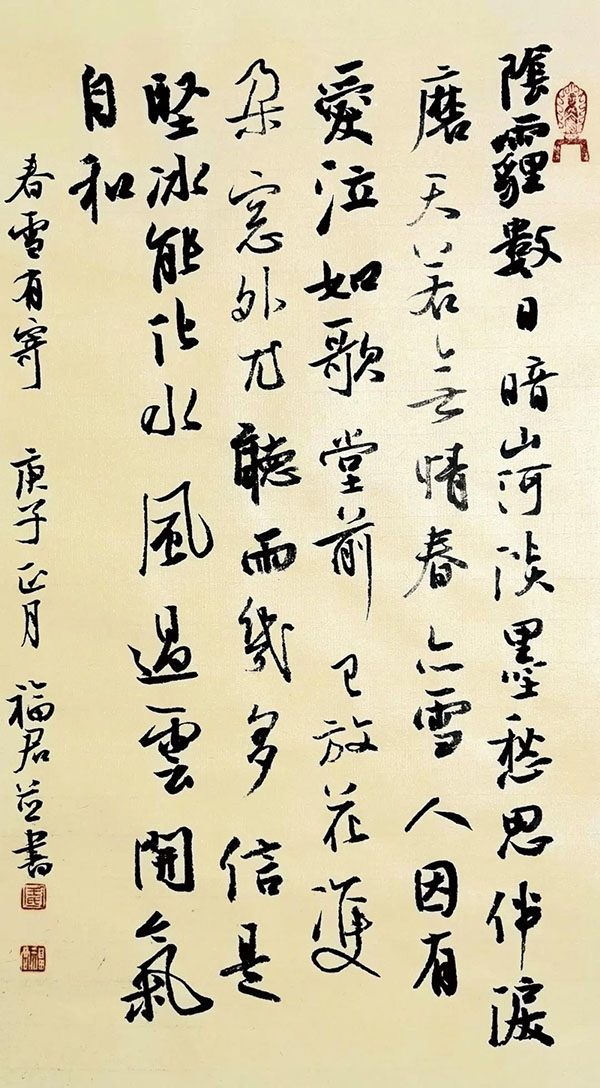 陰霾數日暗山河淡墨愁思伴淚
磨天若無情春亦雪人因有
愛泣如歌堂前已放花雙
朵窓外尤聽雨幾多信是
堅冰能化水風過雲開氣
自和
春雪有寄 庚子正月 福君並書